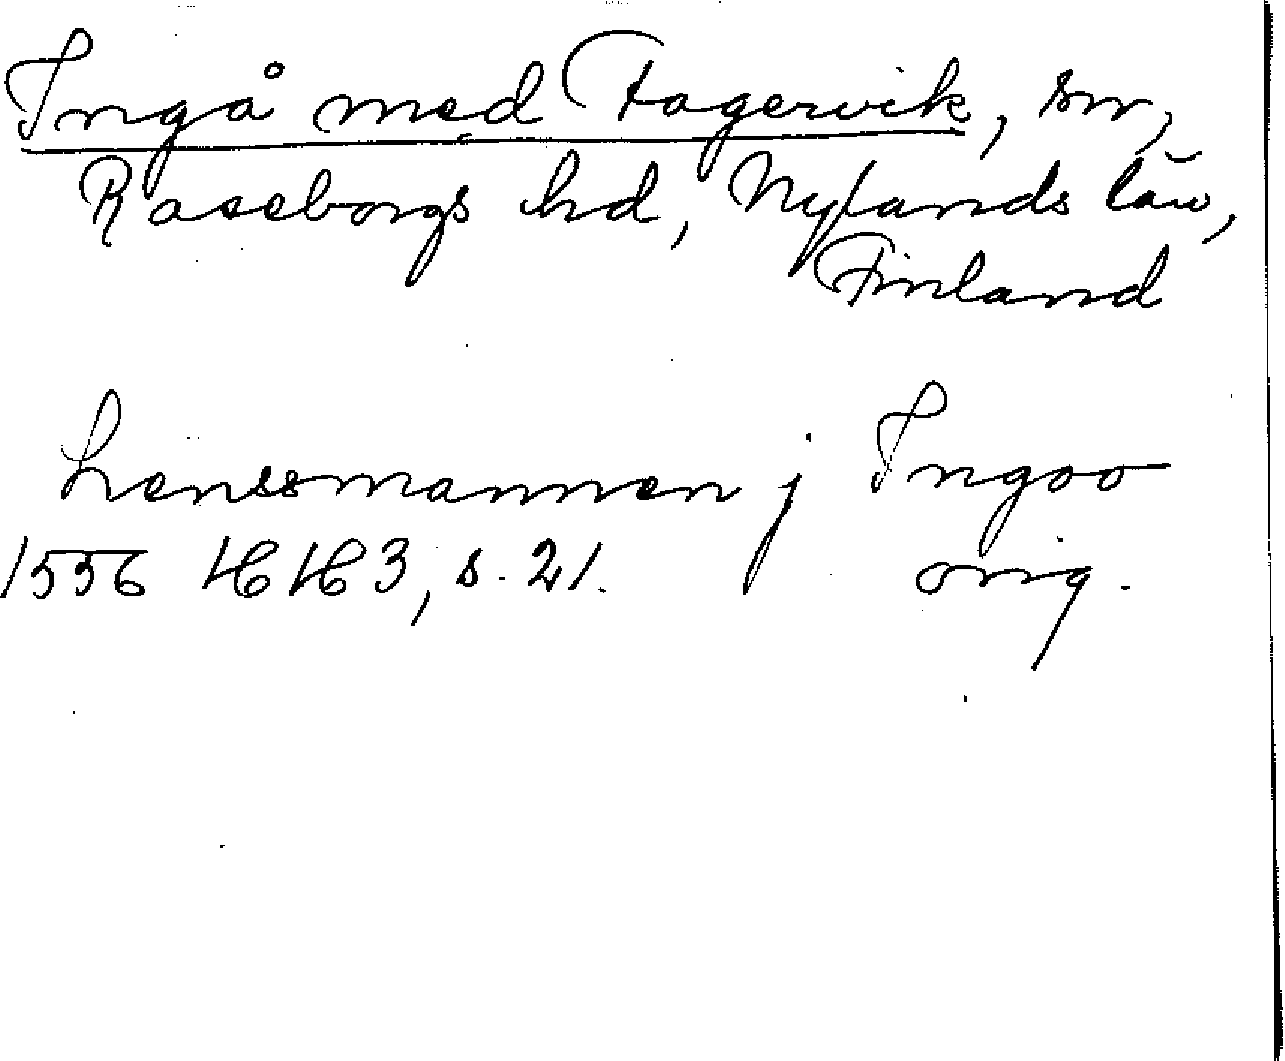 Ingå med Fagervik, sn,
Raseborgs hd, Nylands län,
Finland
Lenssmannen j Ingoo
1556 HH3, s. 21. orig.